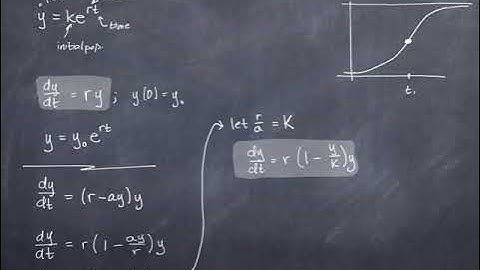 y = ke^{rt}
time
initial pop.
dy/dt = ry ; y(0) = y₀
y = y₀e^{rt}
dy/dt = (r-ay)y
dy/dt = r(1 - ay/r)y
let r/a = K
dy/dt = r(1 - y/K)y
t₁